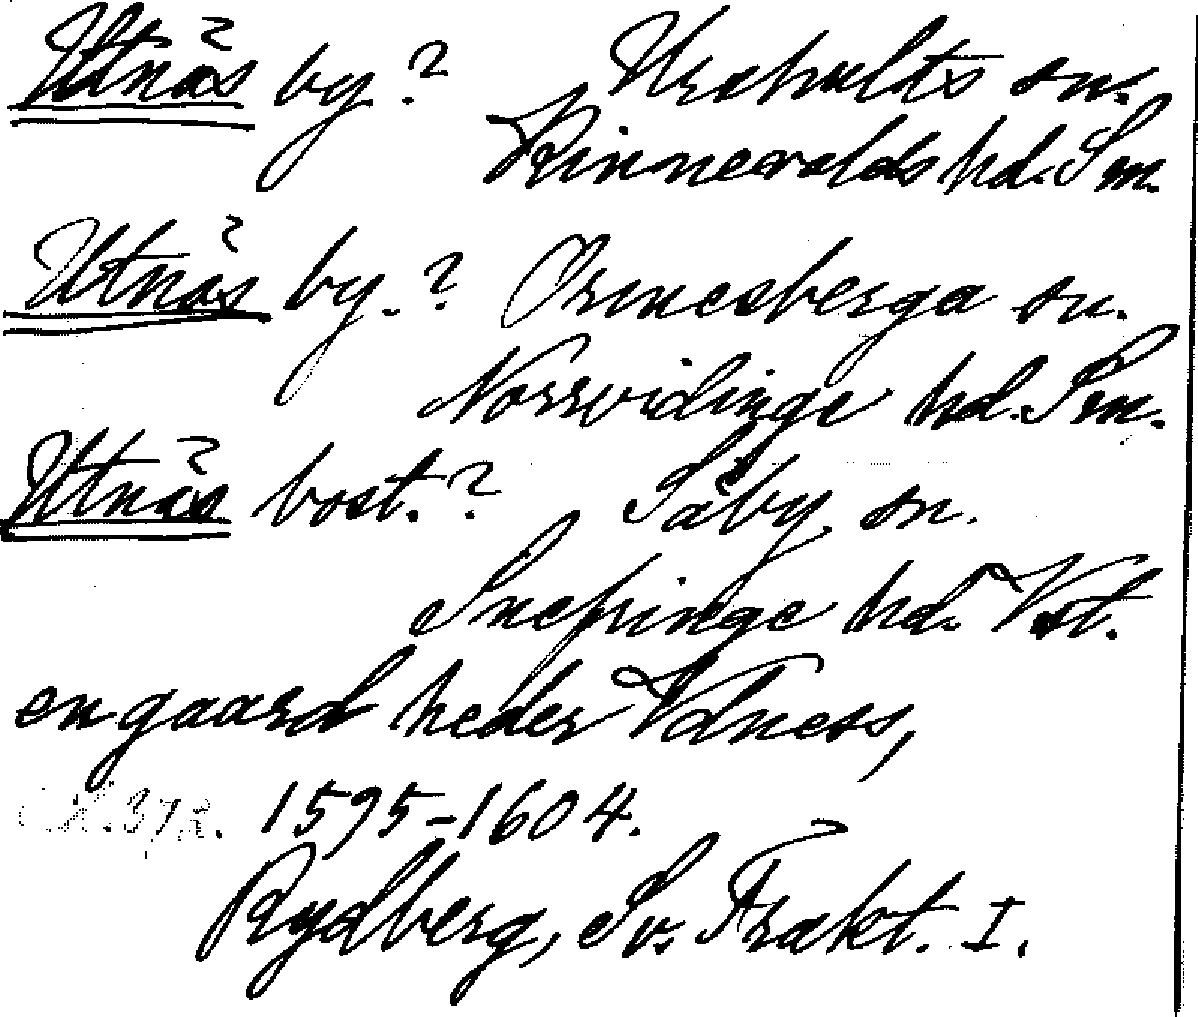 Utnäs by? Urshults sn.
Kinnevalds hd. Sm.
Utnäs by.? Ormesberga sn.
Norrvidinge hd. Sm.
Utnäs bost.? Säby sn.
Snefringe hd. Vst.
en gaard heder Vdness,
1595-1604.
Rydberg, Sv. Trakt. I.